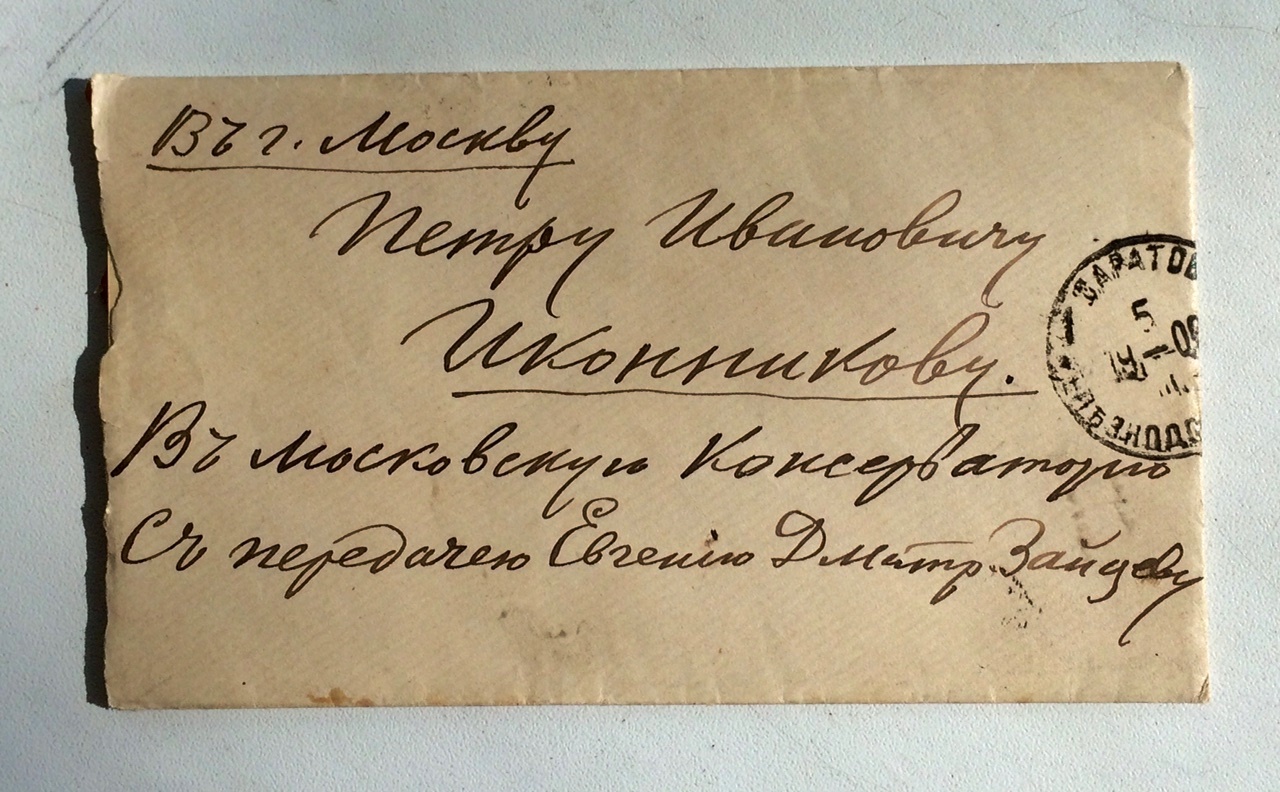 Въ г. Москву
Петру Ивановичу
Иконникову.
Въ Московскую Консерваторію
Съ передачею Евгенію Дмитр. Зайцеву
САРАТОВ
5
1
09